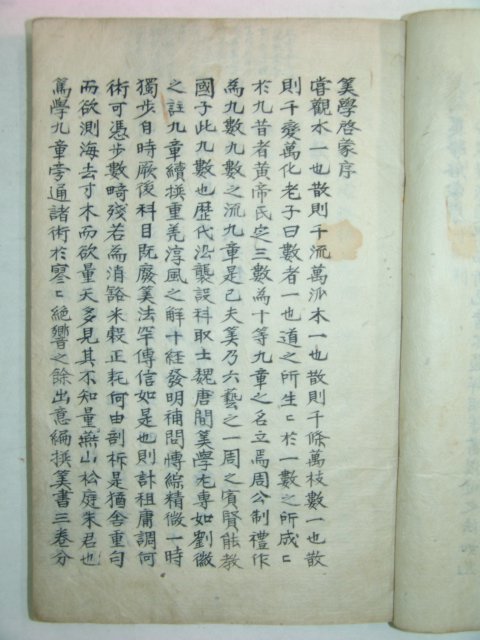 筭學啓蒙序
嘗觀水一也散則千流萬派木一也散則千條萬枝數一也散
則千變萬化老子曰數者一也道之所生〻於一數之所成〻
於九昔者黄帝氏定三數為十等九章之名立焉周公制禮作
為九數九數之流九章是已夫筭乃六藝之一周之賓賢能教
國子此九數也歴代沿襲設科取士魏唐間筭學尤專如劉徽
之註九章續撰重差淳風之解十経發明補問愽綜精微一時
獨步自時厥後科目既廢筭法罕傳信如是也則計租庸調何
術可憑步數畸殘若為消豁米穀正耗何由剖析是猶舍重句
而欲測海去寸木而欲量天多見其不知量燕山松庭朱君也
篤學九章旁通諸術於寥〻絶響之餘出意編撰筭書三卷分